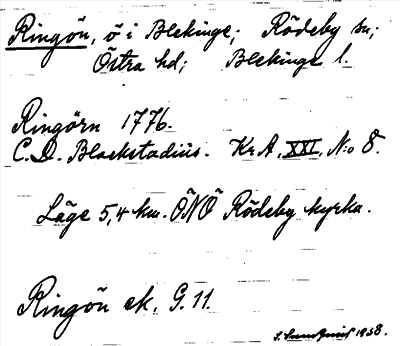 Ringön, ö i Blekinge; Rödeby sn;
Östra hd; Blekinge l.
Ringörn 1776.
C. D. Blackstadius. Kr A, XXI, N:o 8.
Läge 5,4 km. ÖNÖ Rödeby kyrka.
Ringön ek. G. 11.
1958.